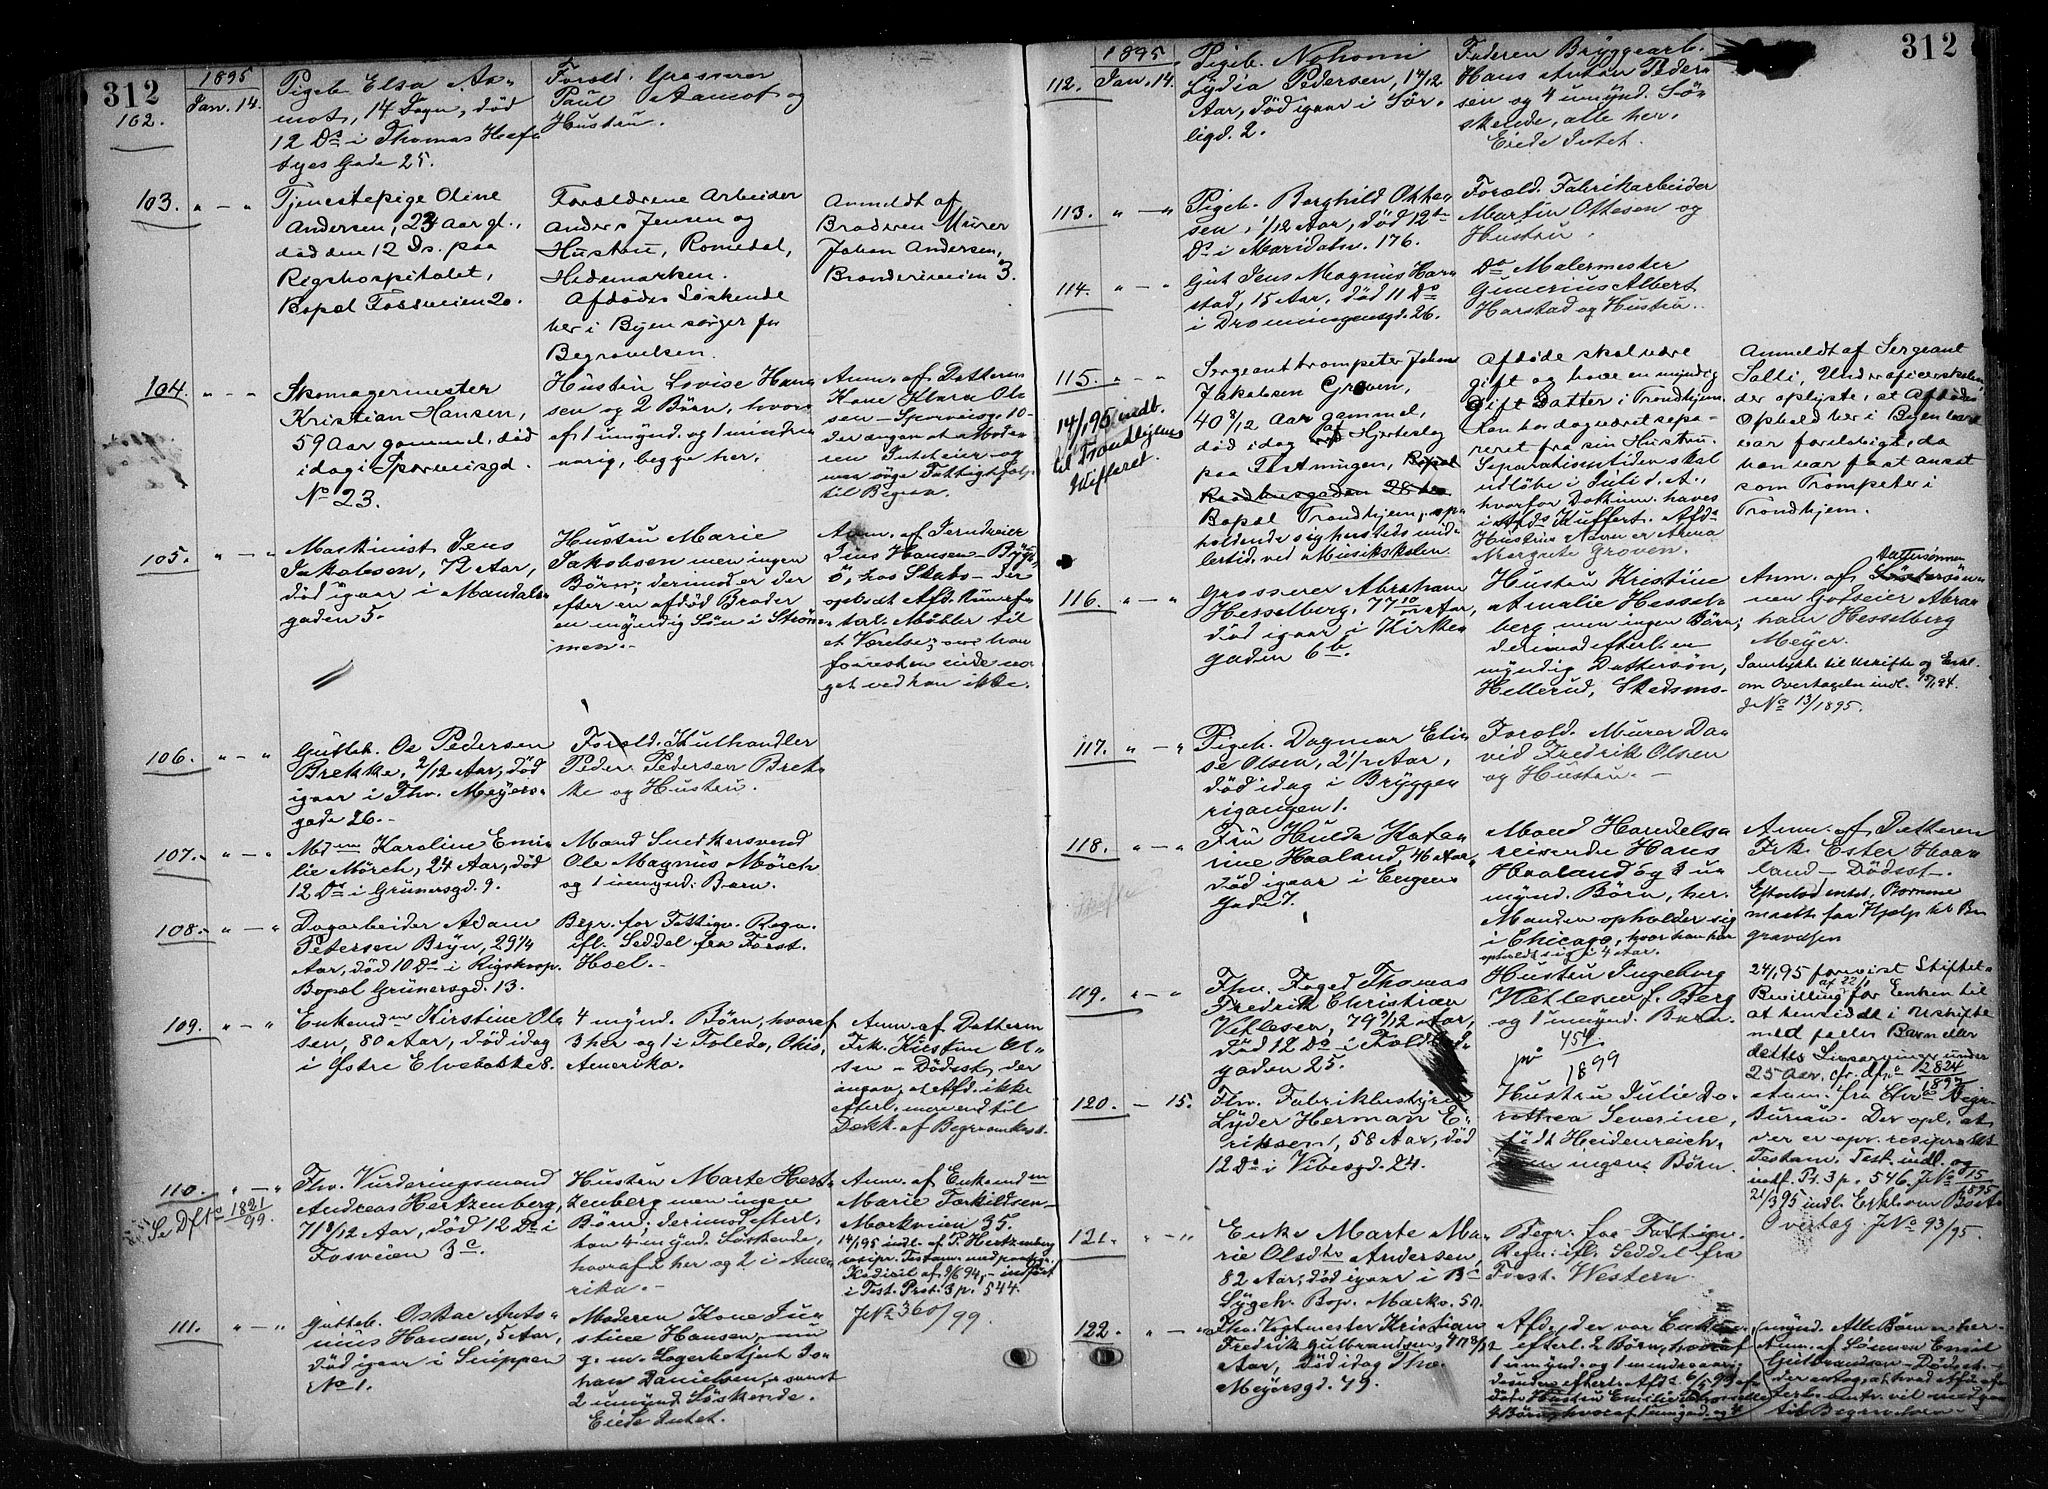 312
1895
102.
Jan. 14.
Pigeb. Elsa Aa-
mot, 14 Dage, død
12 Ds i Thomas Hefte
tyes Gade 25.
Foræld. Grosserer
Paul Aamot og
Hustru.
103. " — "
Tjenestepige Oline
Andersen, 23 Aar gl.,
død den 12 Ds. paa
Rigshospitalet,
Bopæl Fossveien 20.
Forældrene Arbeider
Anders Jensen og
Hustru, Romedal,
Hedemarken.
Afdødes Søskende
her i Byen sørger for
Begravelsen.
Anmeldt af
Broderen Murer
Johan Andersen,
Brenneriveien 3.
104. " — "
Skomagermester
Kristian Hansen,
59 Aar gammel, død
idag i Sporveisgd.
No 23.
Hustru Lovise Han
sen og 2 Børn, hvor-
af 1 umynd. og 1 mindre-
aarig, begge her.
Anm. af Datteren
Kone Klara Ol-
sen – Sporveisg. 10 –
der angav at Mode-
ren Intet eier og
maa søge Fattighjælp
til Begrav.
105. " — "
Maskinist Jens
Jakobsen, 72 Aar,
død igaar i Mandals-
gaden 5.
Hustru Marie
Jakobsen men ingen
Børn; derimod er der
efter en afdød Broder
en myndig Søn i Strøm-
men.
Anm. af Jerndreier
Jens Hansen – Bygd
ø, hos Skabo – der
oplyst Afd. kun efter
lod Møbler til
et Værelse; om han
forresten eiede no-
get ved han ikke.
106. " — "
Gutteb. Os Pedersen
Brekke, 2/12 Aar, død
igaar i Thv. Meyers-
gade 26.
Foræld. Kulhandler
Peder Pedersen Brek-
ke og Hustru.
107. " — "
Madm Karoline Emi-
lie Mørch, 24 Aar, død
12 Ds i Grünersgd. 9.
Mand Snedkersvend
Ole Magnus Mørch
og 1 umynd. Barn.
108. " — "
Dagarbeider Adam
Petersen Bryn, 29 1/4
Aar, død 10 Ds i Rigshosp.
Bopæl Grünersgd. 13.
Begr. for Fattigv. Regn.
ifl. Seddel fra Forst.
Hoel.
109. " — "
Enkemdm Kirstine Ol-
sen, 80 Aar, død idag
i Østre Elvebakke 8.
4 mynd. Børn, hvoraf
3 her og 1 i Toledo, Ohio,
Amerika.
Anm. af Datteren
Frk. Kirsten Ol-
sen – Dødsst. der
angav, at Afd. ikke
efterl. mere end til
Dækk. af Begr.omkost.
110. " — "
Se Df No 1821/99.
Fhv. Vurderingsmand
Andreas Hertzenberg,
71 8/12 Aar, død 12 Ds i
Fosveien 3c.
Hustru Marte Hert-
zenberg men ingen
Børn; derimod efterl.
han 4 mynd. Søskende,
hvoraf 2 her og 2 i Ame-
rika.
Anm. af Enkemdm
Marie Torkildsen –
Markveien 35.
14/1 95 indl. af P. Hertzenberg
resipr. Testam. med paategn.
Kodicil af 9/6 94, – indført
i Test. Prot. 3 p. 544.
J No 360/99.
111. " — "
Gutteb. Oskar Anto-
nius Hansen, 5 Aar,
død igaar i Snippen
No 1.
Moderen Kone Ju-
stine Hansen, nu
g. m. Lagerbetjent Jo-
han Danielsen, samt
2 umynd. Søskende.
Eiede Intet.
312
1895
112. Jan. 14.
Pigeb. Nohomi
Lydia Pedersen, 14/12
Aar, død igaar i Sør-
ligd. 2.
Faderen Bryggearb.
Hans Anton Peder-
sen og 4 umynd. Sø-
skende, alle her.
Eiede Intet.
113. " — "
Pigeb. Borghild Otte-
sen, 1/12 Aar, død 12te
Ds i Maridalsv. 176.
Foræld. Fabrikarbeider
Martin Ottesen og
Hustru.
114. " — "
Gut Jens Magnus Har-
stad, 15 Aar, død 11 Ds
i Dronningensgd. 26.
Do Malermester
Gunerius Albert
Harstad og Hustru.
115. " — "
14/1 95 indb.
til Trondhjems
Skifteret.
Sergeant trompeter Johan
Jakobsen Groven,
40 8/12 Aar gammel,
død idag af Hjerteslag
paa Fæstningen, Bopæl
Raadhusgaden 28
Bopæl Trondhjem, op-
holdende sig hustids mid-
lertid. ved Musikskolen.
Afdøde skal være
gift og have en myndig
gift Datter i Trondhjem.
Han har dog været sepa-
reret fra sin Hustru.
Separationstiden skal
udløbe i Juli d. A.,
hvorfor Dokum. haves
i Afds Kuffert. Afds
Hustrus Navn er Anna
Margrete Groven.
Anmeldt af Sergeant
Salli, Underoficerskolen
der oplyste, at Afdødes
Ophold her i Byen
var foreløbigt, da
han var fast ansat
som Trompeter i
Trondhjem.
116. " — "
Grosserer Abraham
Hesselberg, 77 10/12 Aar,
død igaar i Kirke-
gaden 6b.
Hustru Kristine
Amalie Hessel-
berg men ingen Børn;
derimod efterl. en
myndig Dattersøn,
Hellerud, Skedsmo.
Dattersønnen
Anm. af Søstersøn-
nen Godseier Abra-
ham Hesselberg
Meyer.
Samtykke til Uskifte og Erkl.
om Overtagelse indl. 15/1 94.
J No 13/1895.
117. " — "
Pigeb. Dagmar Eli-
se Olsen, 2 1/2 Aar,
død idag i Brygge-
rigangen 1.
Foræld. Murer Da-
vid Fredrik Olsen
og Hustru.
118. " — "
Fru Hulda Kata-
rine Haaland, 46 Aar,
død igaar i Engens
Gade 7.
Mand Handels-
reisende Hans
Haaland og 3 u-
mynd. Børn, her.
Manden opholder sig
i Chicago, hvor han har
opholdt sig i 4 Aar.
Anm. af Datteren
Frk. Ester Haa-
land – Dødsst.
Efterlod intet, Børnene
maatte faa Hjælp til Be
gravelsen
119. " — "
Fhv. Foged Thomas
Fredrik Christian
Vetlesen, 79 3/12 Aar,
død 12 Ds i Toldbod-
gaden 25.
Hustru Ingeborg
Wetlesen f. Berg
og 1 umynd. Barn.
454
1899
24/1 95 forevist Stiftel.
af 22/1
Bevilling for Enken til
at hensidde i Uskifte
med fælles Barn eller
dettes Livsarvinger under
25 Aar. cfr. Df No 2824/1897
120. — 15.
Fhv. Fabrikbestyrer
Lyder Herman E-
riksen, 58 Aar, død
12 Ds i Vibesgd. 24.
Hustru Julie Do-
rothea Severine,
født Heidenreich,
men ingen Børn.
Anm. fra Chra Begr.
Bureau. Der opl. at
der er opr. resipr.
Testam. Test. indl. og
indf. Pr. 3 p. 546. J No 15/1895
21/3 95 indl. Erkl. om Boets
Overtag. J No 93/95.
121. " — "
Enke Marte Ma-
rie Olsdtr Andersen,
82 Aar, død igaar i Bs
Sygeh. Bop. Markv. 57.
Begr. for Fattigv.
Regn. ifl. Seddel fra
Forst. Western.
122. " — "
Fhv. Vognmester Kristian
Fredrik Gulbrandsen, 47 8/12
Aar, død idag Thv.
Meyersgd. 49.
Afd., der var Enkem.,
efterl. 2 Børn, hvoraf
1 umynd. og 1 mindreaarig
desuden efterl. Afds 6/1 93 af-
døde Hustru Emilie
4 Børn, hvoraf 1 umynd. og
mynd. Alle Børn er her.
Anm. af Sønnen Emil
Gulbrandsen – Dødsst. –
der antog, at hvad Afd. ef-
terl. omtr. vil medgaa
til Begravelsen.